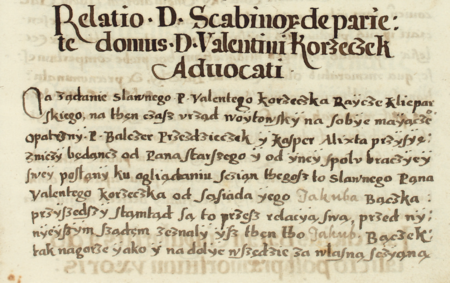 Relatio · D. Scabinor. de parie:
te domus · D · Valentini Korzeczek
Advocati
Na ządanie Slawnego P. Valentego Korzeczka Rayczę Kliepar
skiego, na then czasz vrząd woytowsky na sobye mayącze°
opatrzny P. Balczer Przezdzieczek y Kasper Alixta przysyę:
zniczy bedancz od Pana starszego y od yney spolv braczyey
swey posłany ku oglądaniu sczian thegosz to Slawnego Pana
Valentego Korzeczka od sąsiada yego Jakuba Bączka:
przyszedszy stamtąd są to przesz relacyą swą, przed ny:
nyeyszym sządem zeznaly ysz then tho Jakub Bączek
tak nagorze yako y na dolye wszędzie za własną sczyąną